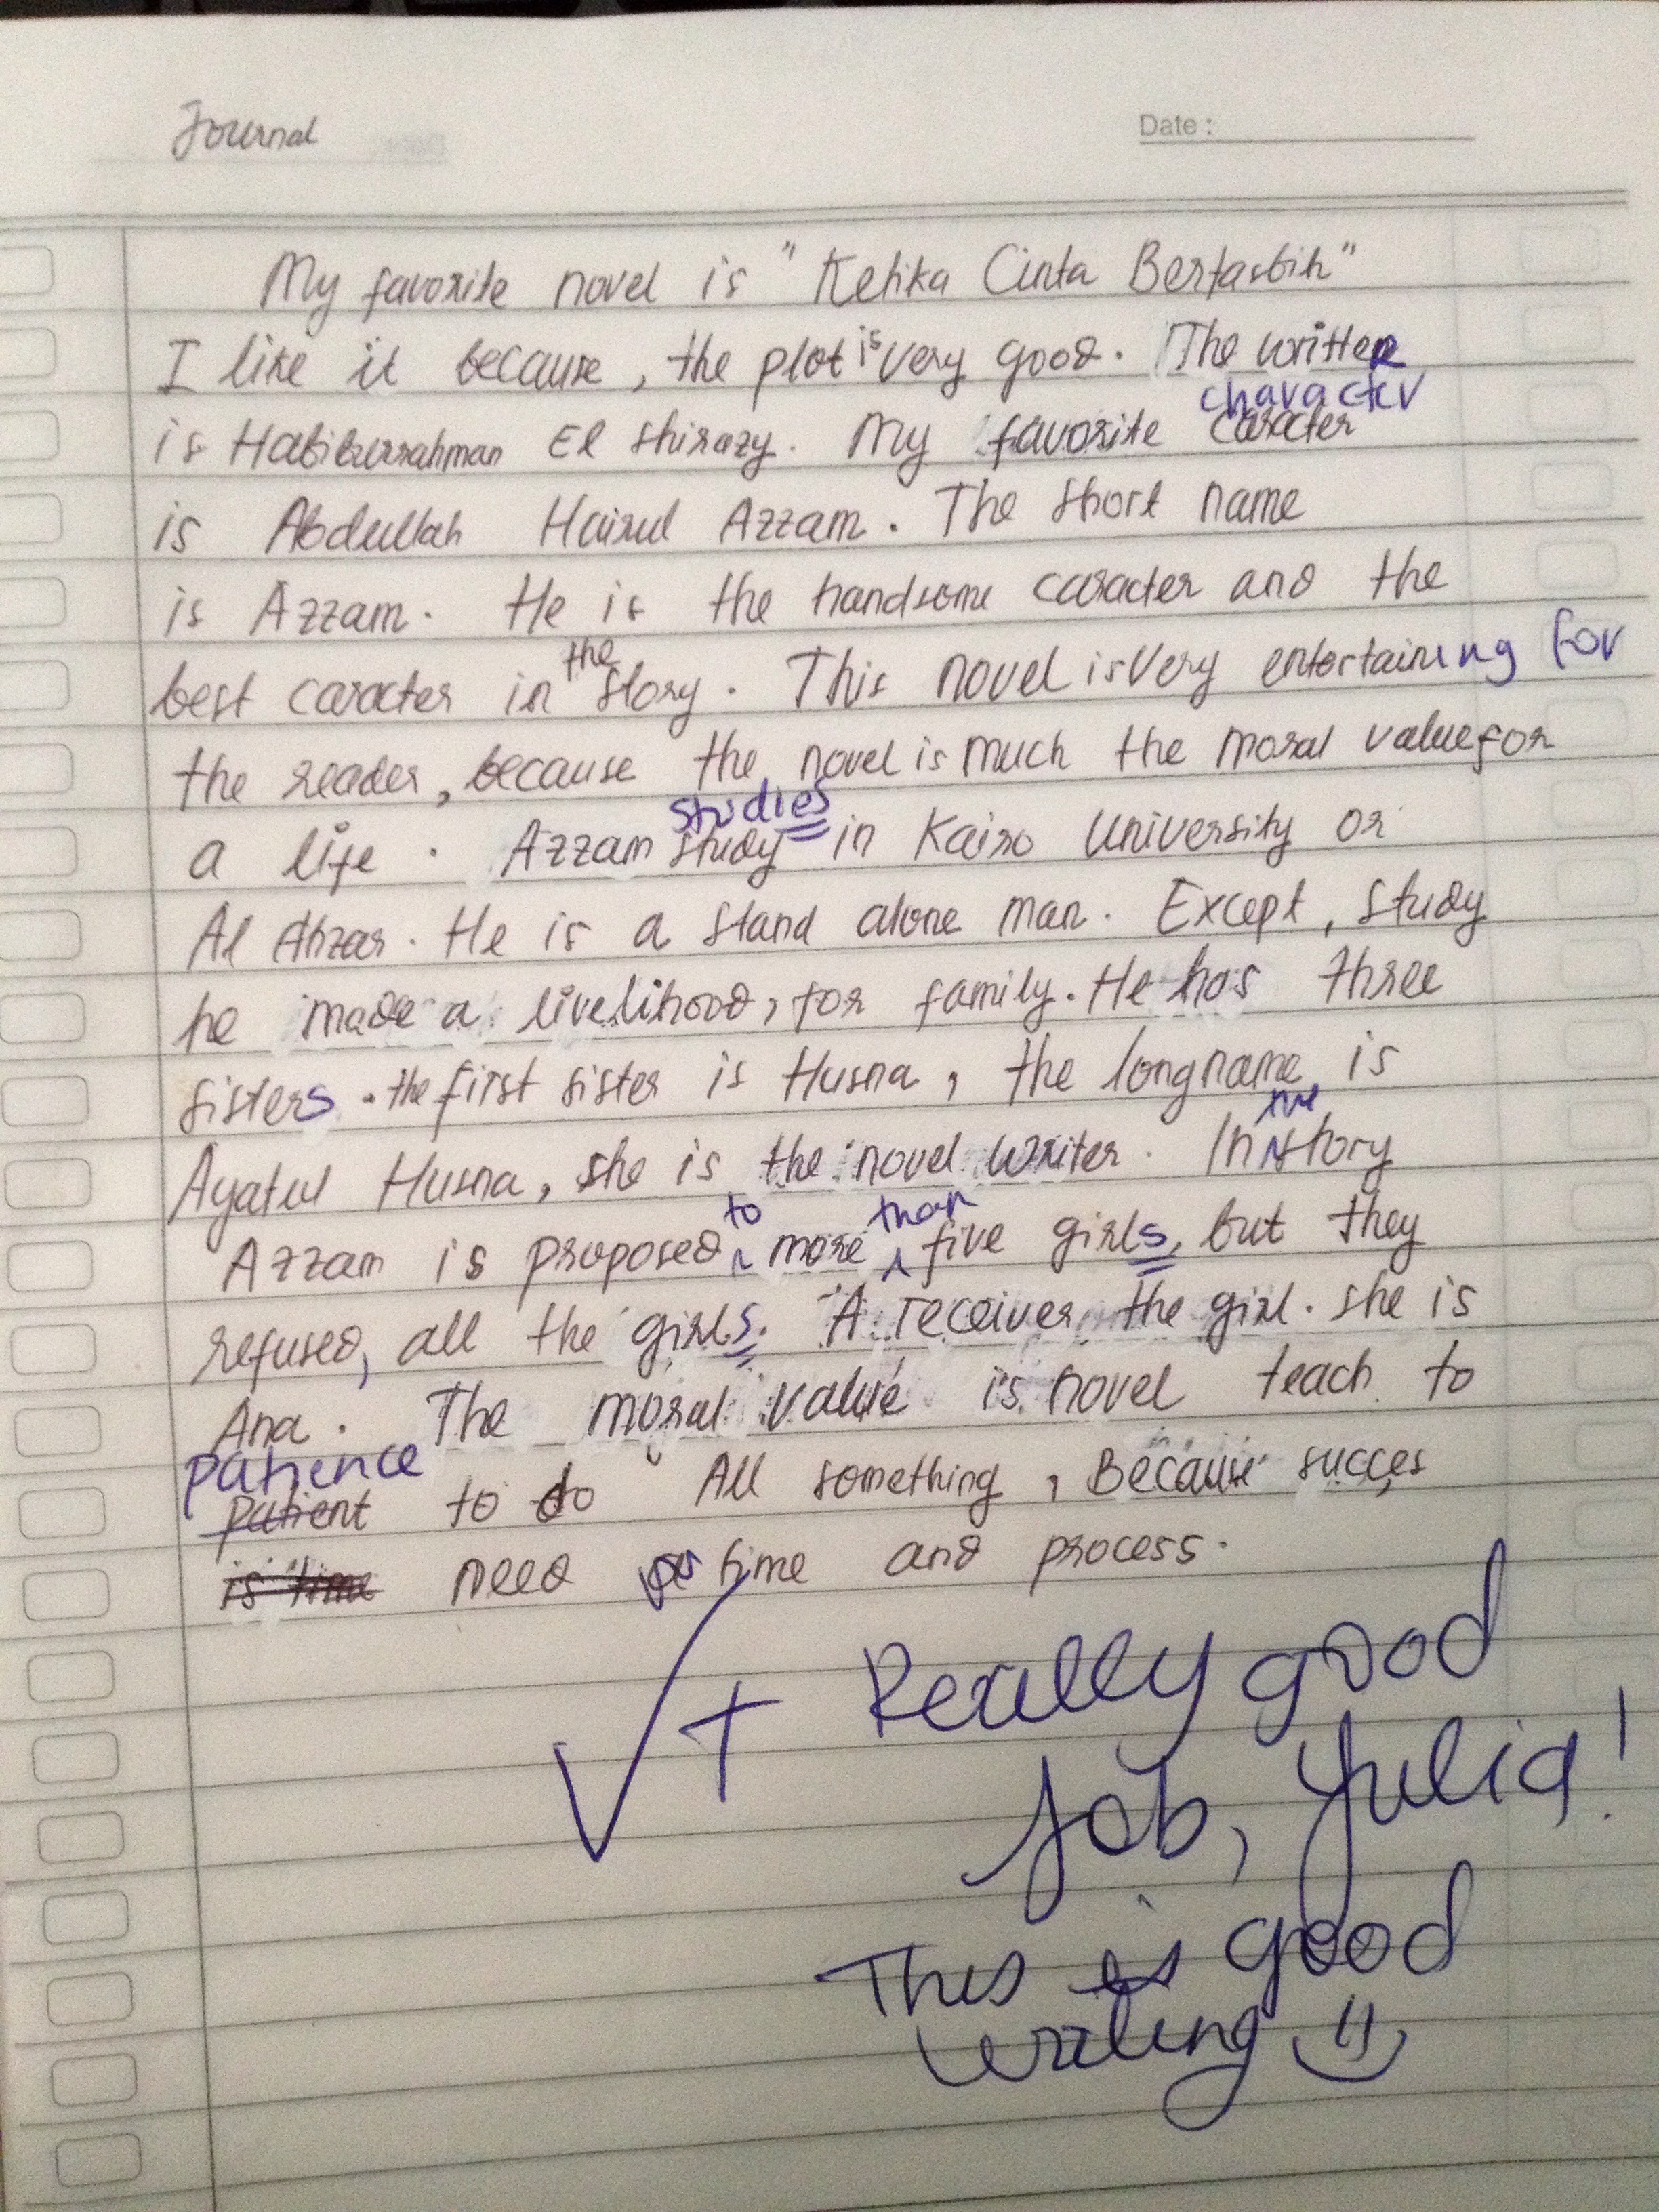 Journal
Date :
My favorite novel is "Ketika Cinta Bertasbih"
I like it because, the plot is very good. The writter
character
is Habiburrahman El Shirazy. My favorite caracter
is Abdullah Hairul Azzam. The short name
is Azzam. He is the handsome caracter and the
the
best caracter in story. This novel is very entertaining for
the reader, because the novel is much the moral value for
studies
a life. Azzam study in Kairo University or
Al Ahzar. He is a stand alone man. Except, study
he made a livelihood, for family. He has three
sisters. the first sister is Husna, the long name is
the
Ayatul Husna, she is the novel writer. In story
to than
Azzam is proposed more five girls, but they
refused, all the girls. A receiver the girl. she is
Ana. The moral value is novel teach to
patience
patient to do All something, Because succes
is time need time and process.
Really good
job, Yulia!
This is good
writing